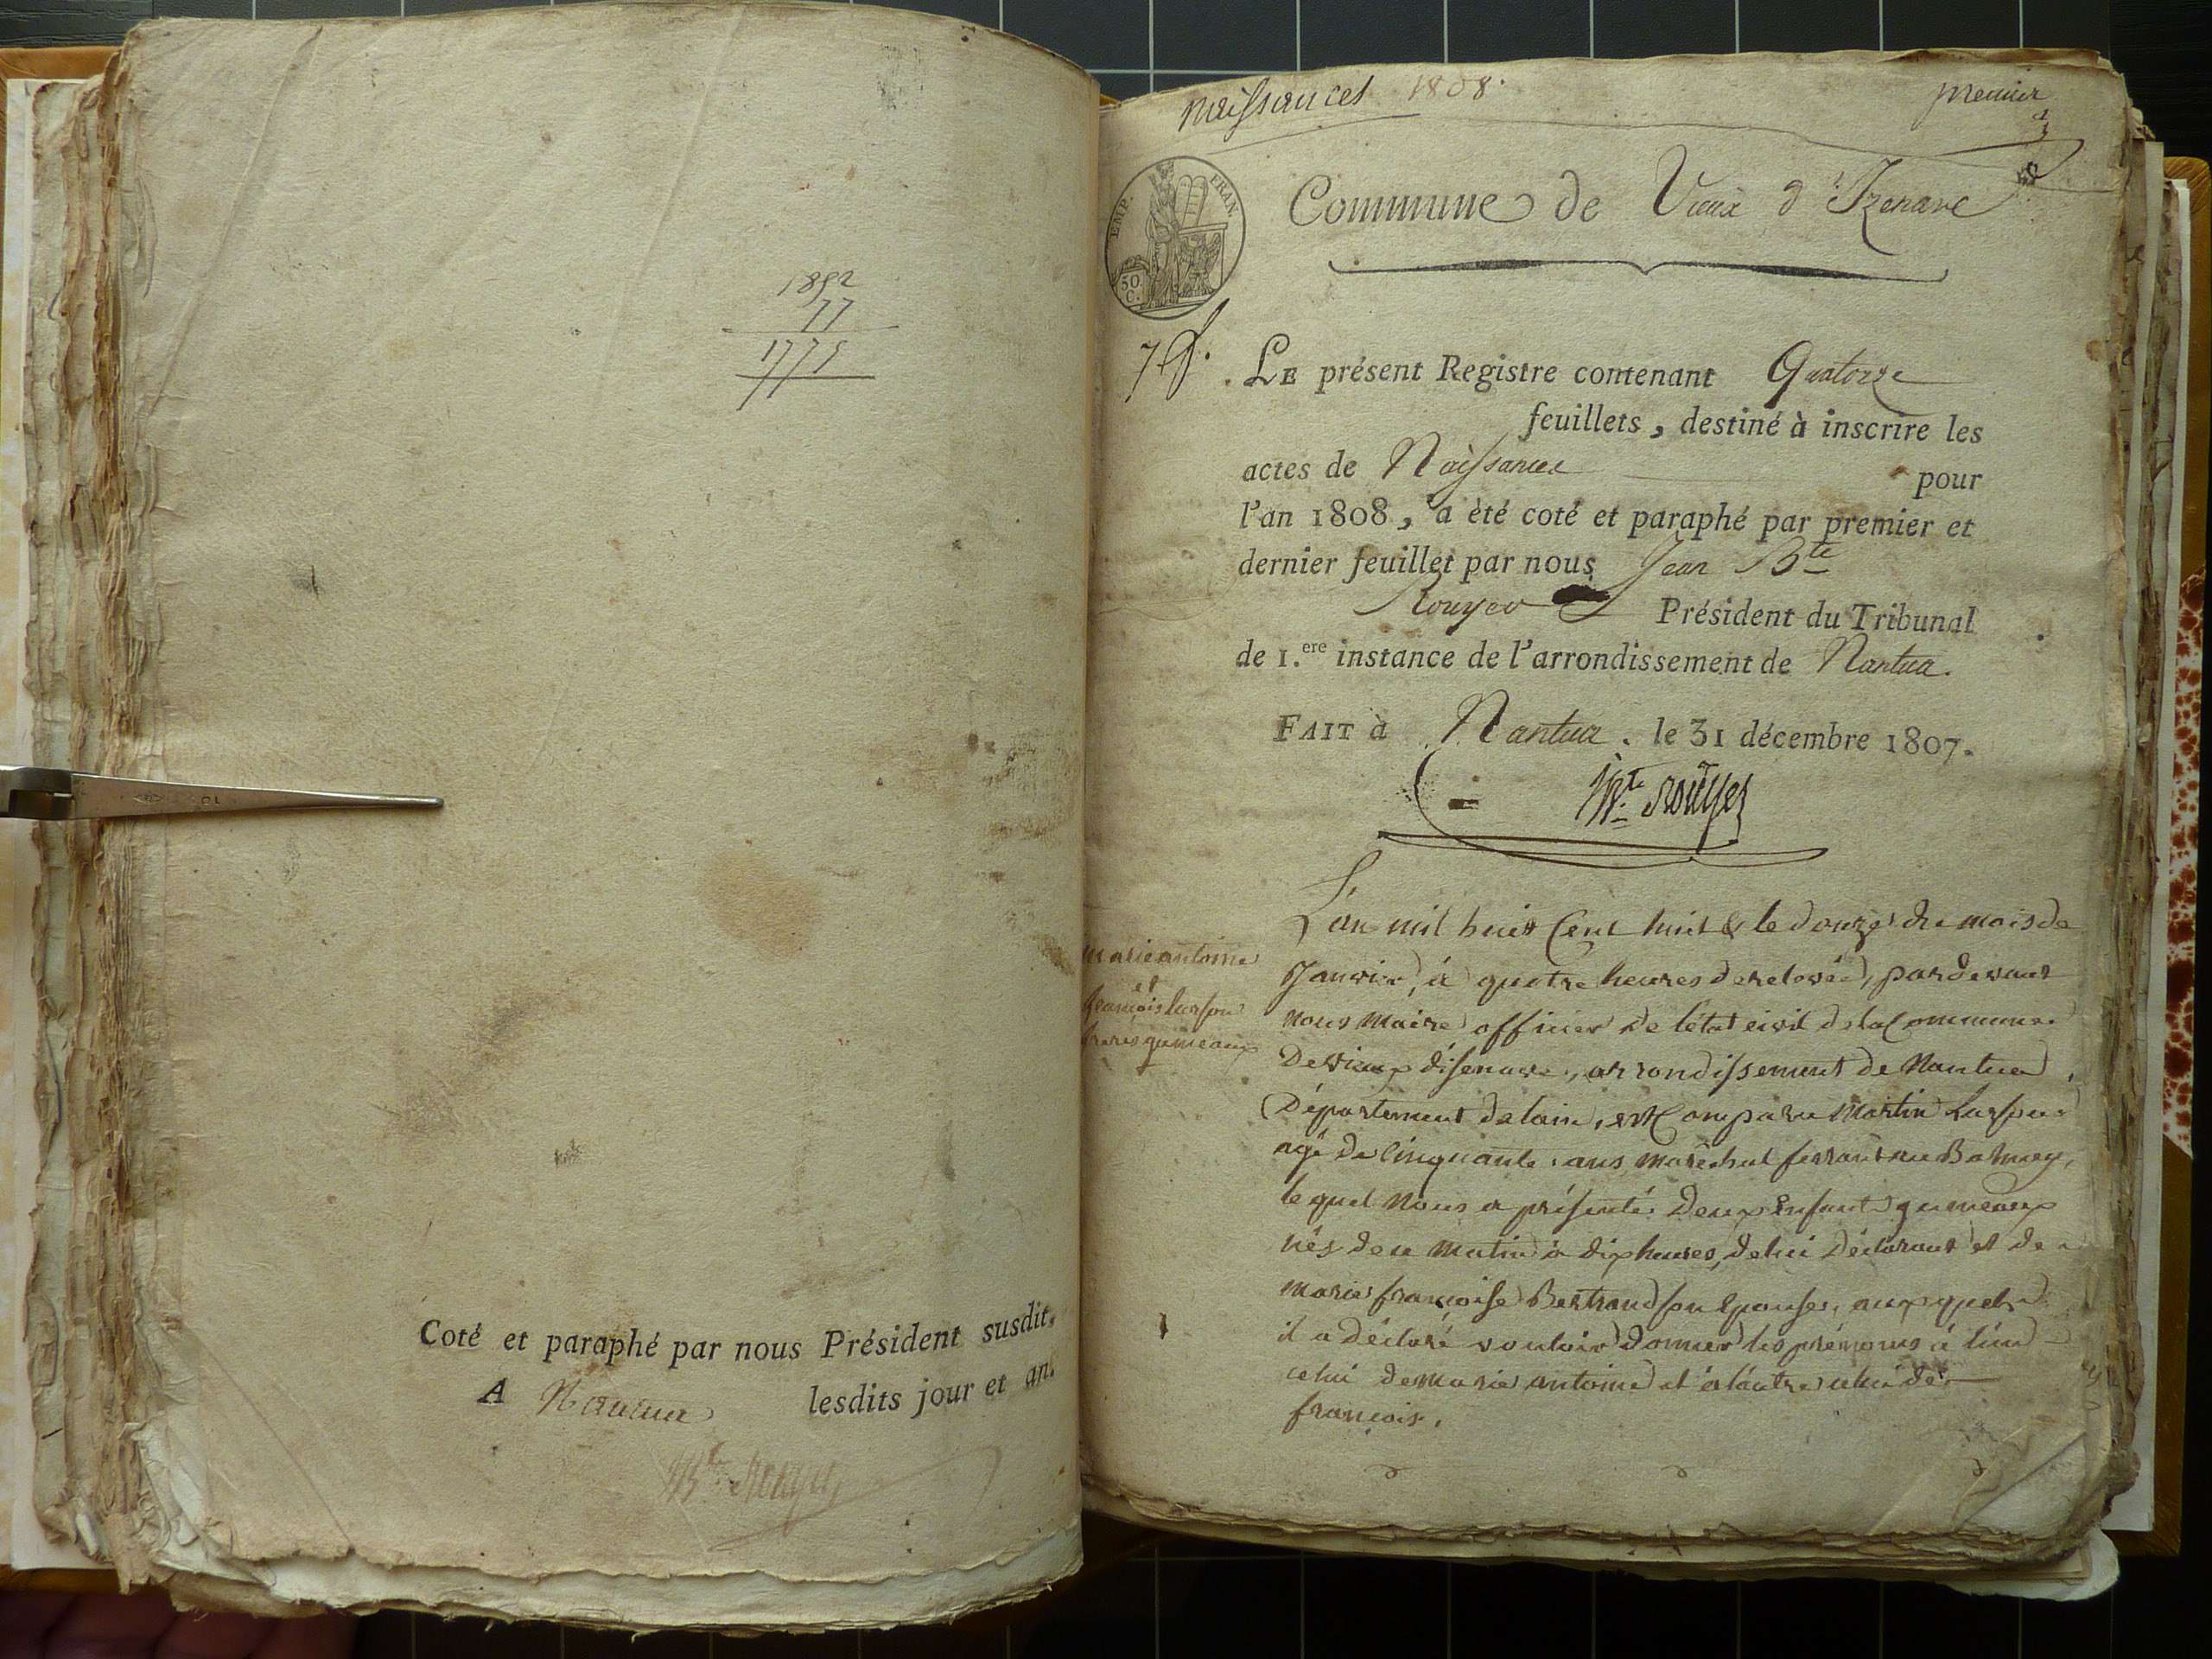 1852
77
1775
Coté et paraphé par nous Président susdit,
A Nantua lesdits jour et an.
Bte Rouyer
naissances 1808.
premier
EMP. FRAN.
50
C.
Commune de Vieux d'Izenave
LE présent Registre contenant Quatorze
feuillets, destiné à inscrire les
actes de Naissances pour
l'an 1808, a èté coté et paraphé par premier et
dernier feuillet par nous Jean Bte
Rouyer Président du Tribunal
de 1.ere instance de l'arrondissement de Nantua.
FAIT à Nantua. le 31 décembre 1807.
Bte Rouyer
marie antoine
et
françois
freres gumeaux
L'an mil huit Cent huit & le douze du mois de
Janvier, à quatre heures de relevée, pardevant
nous Maire officier de l'état civil de la Commune
De vieux d'isenave, arrondissement de Nantua,
Département de lain, est Comparu Martin
agé de Cinquante ans, maréchal ferrant au Balmey,
lequel Nous a présenté Deux Enfants gumeaux
nés de ce matin à dix heures, de lui Déclarant et de
marie françoise Bertrand son Epouse, auxquels
il a déclaré vouloir donner les prénoms à l'un
celui de marie antoine et à l'autre celui de
françois.